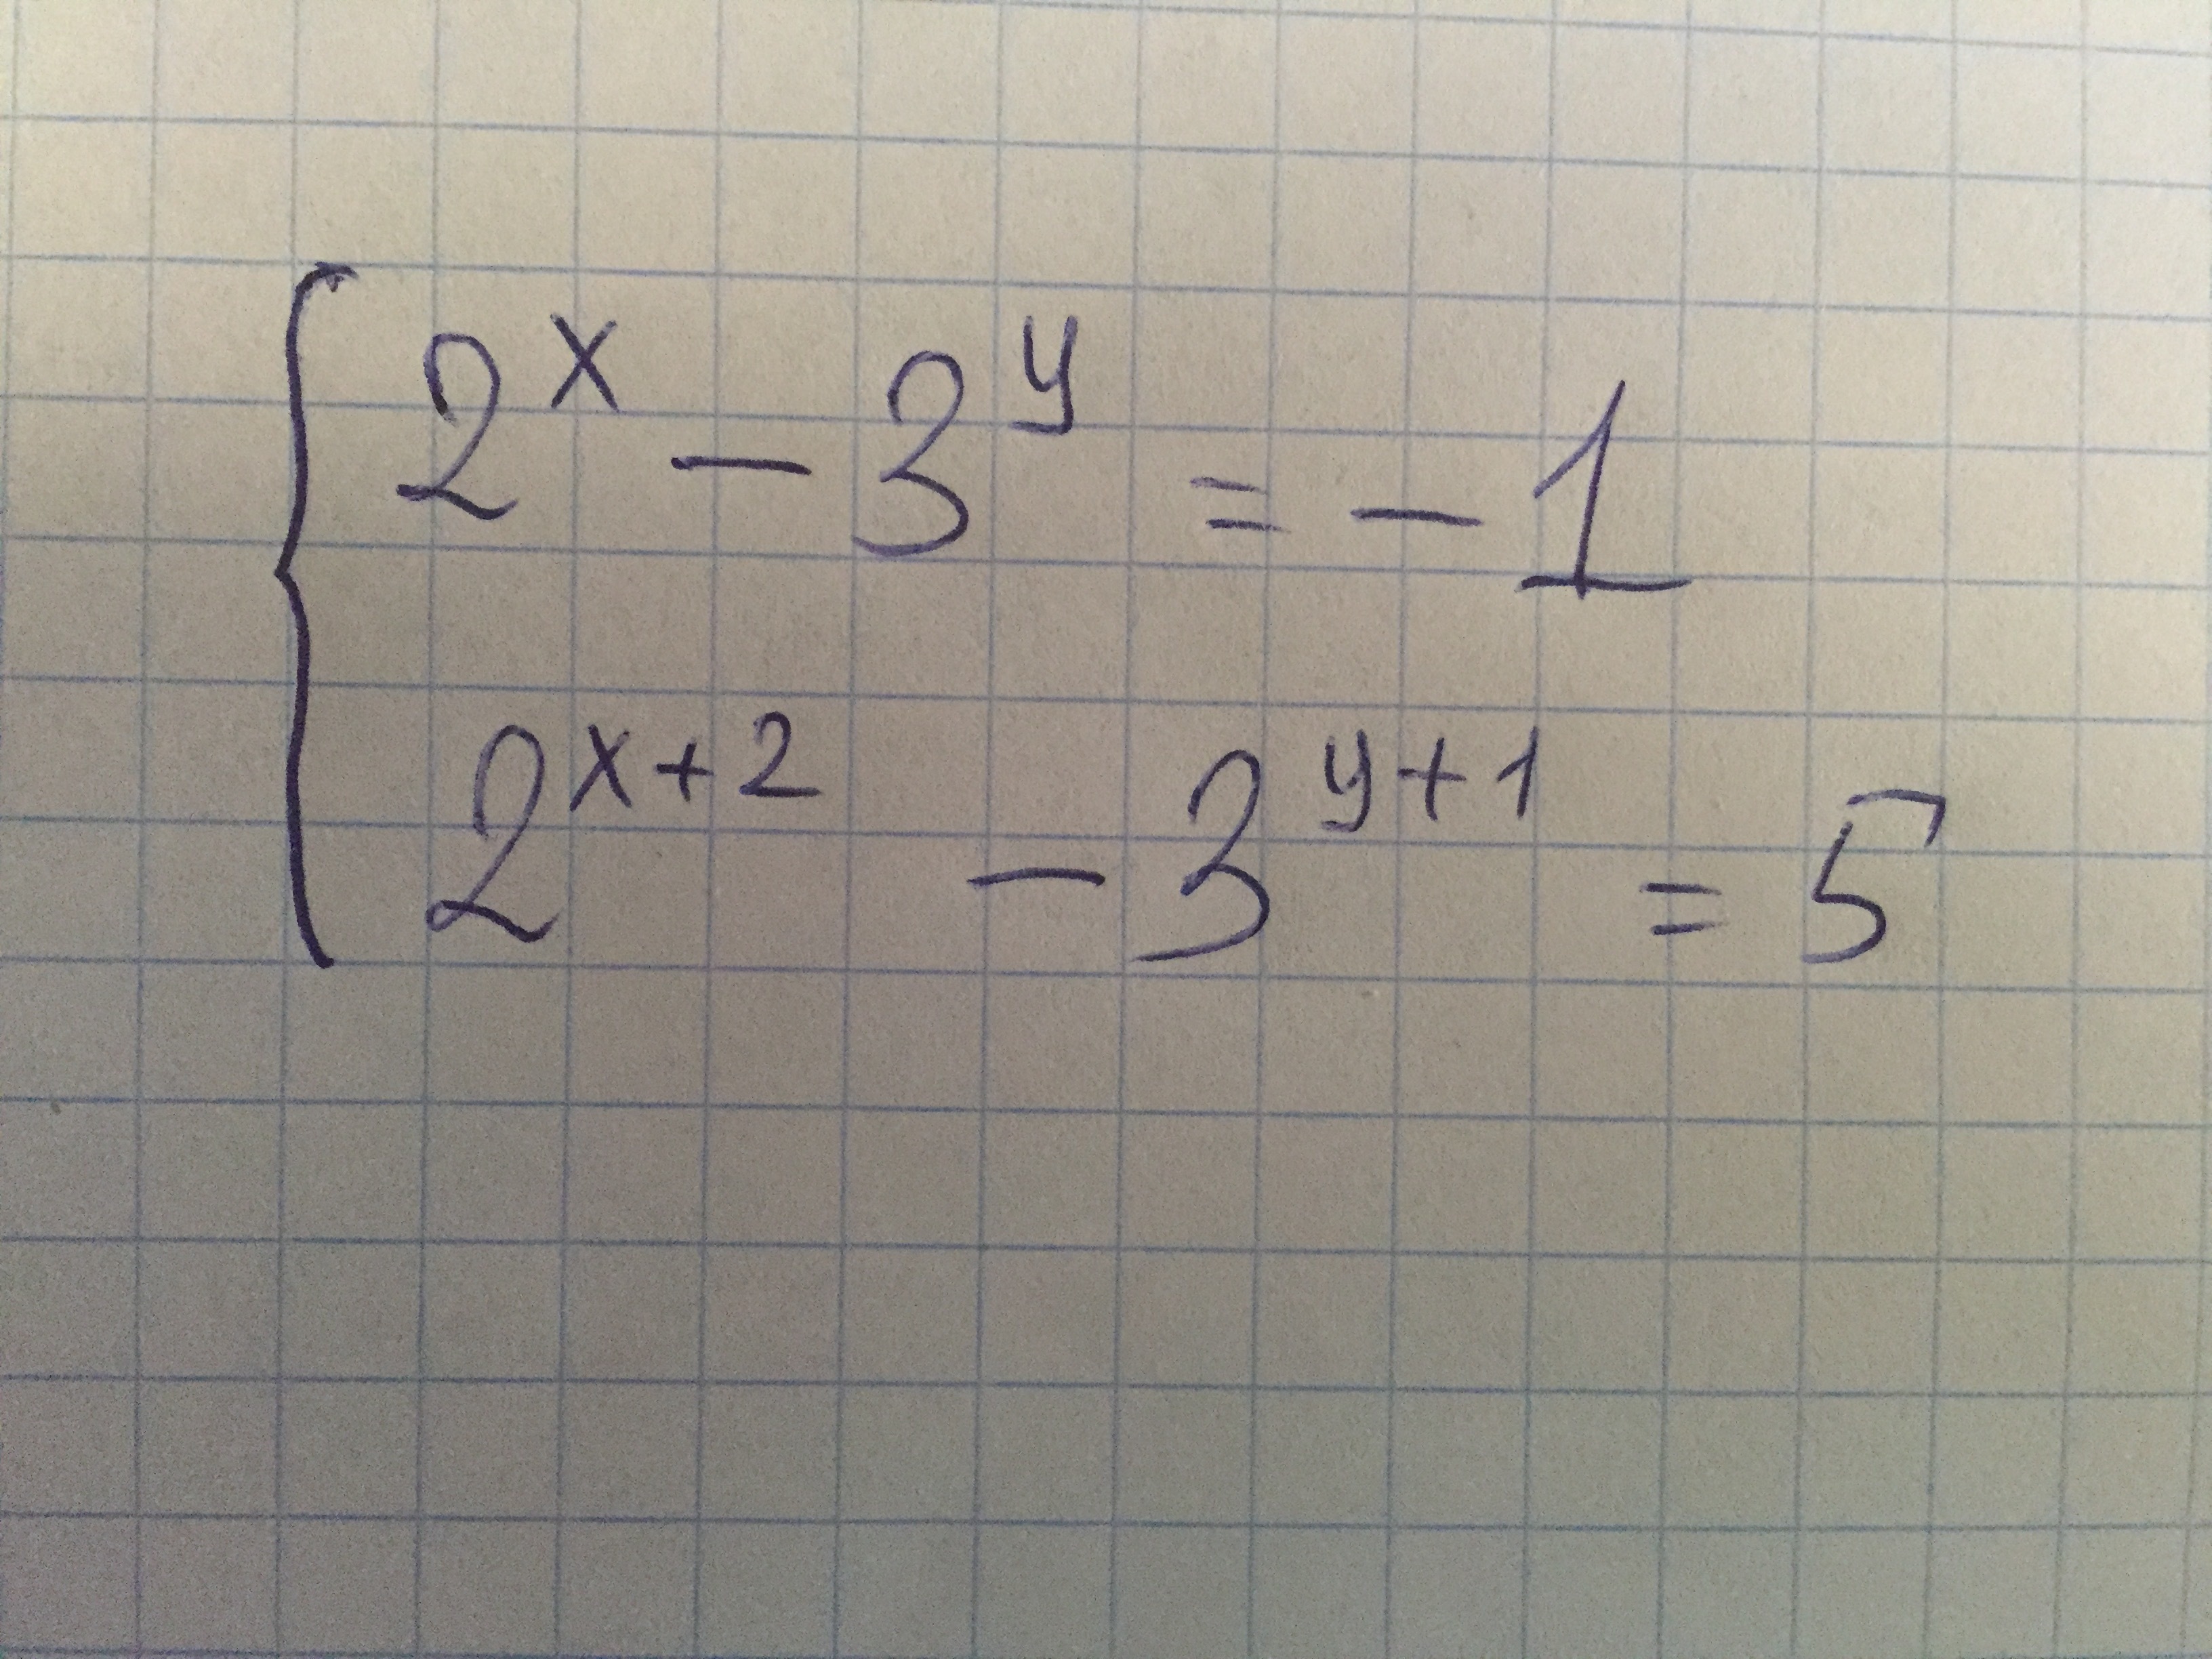 2^x - 3^y = -1
2^{x+2} - 3^{y+1} = 5